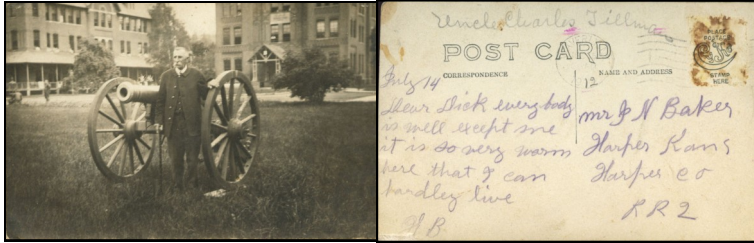 Uncle Charles Tillman
POST CARD
CORRESPONDENCE
NAME AND ADDRESS
PLACE
POSTAGE
STAMP
HERE
12
July 14
Dear Dick every body
is well except me
it is so very warm
here that I can
hardley live
W B
Mr J N Baker
Harper Kans
Harper Co
R R 2